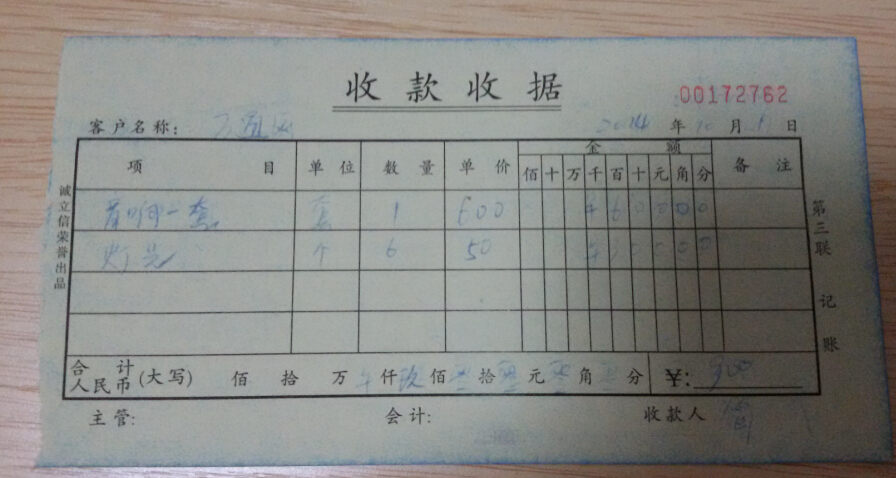 收款收据
00172762
客户名称: 2014 年 10 月 1 日
项目 单位 数量 单价 金额 备注
佰 十 万 千 百 十 元 角 分
一套 套 1 600 ¥ 6 0 0 0 0
灯光 个 6 50 0 0 0 0
合计人民币(大写) 佰 拾 万 仟 玖 佰 零 拾 零 元 零 角 零 分 ¥: 900
主管: 会计: 收款人
诚立信荣誉出品
第三联 记账